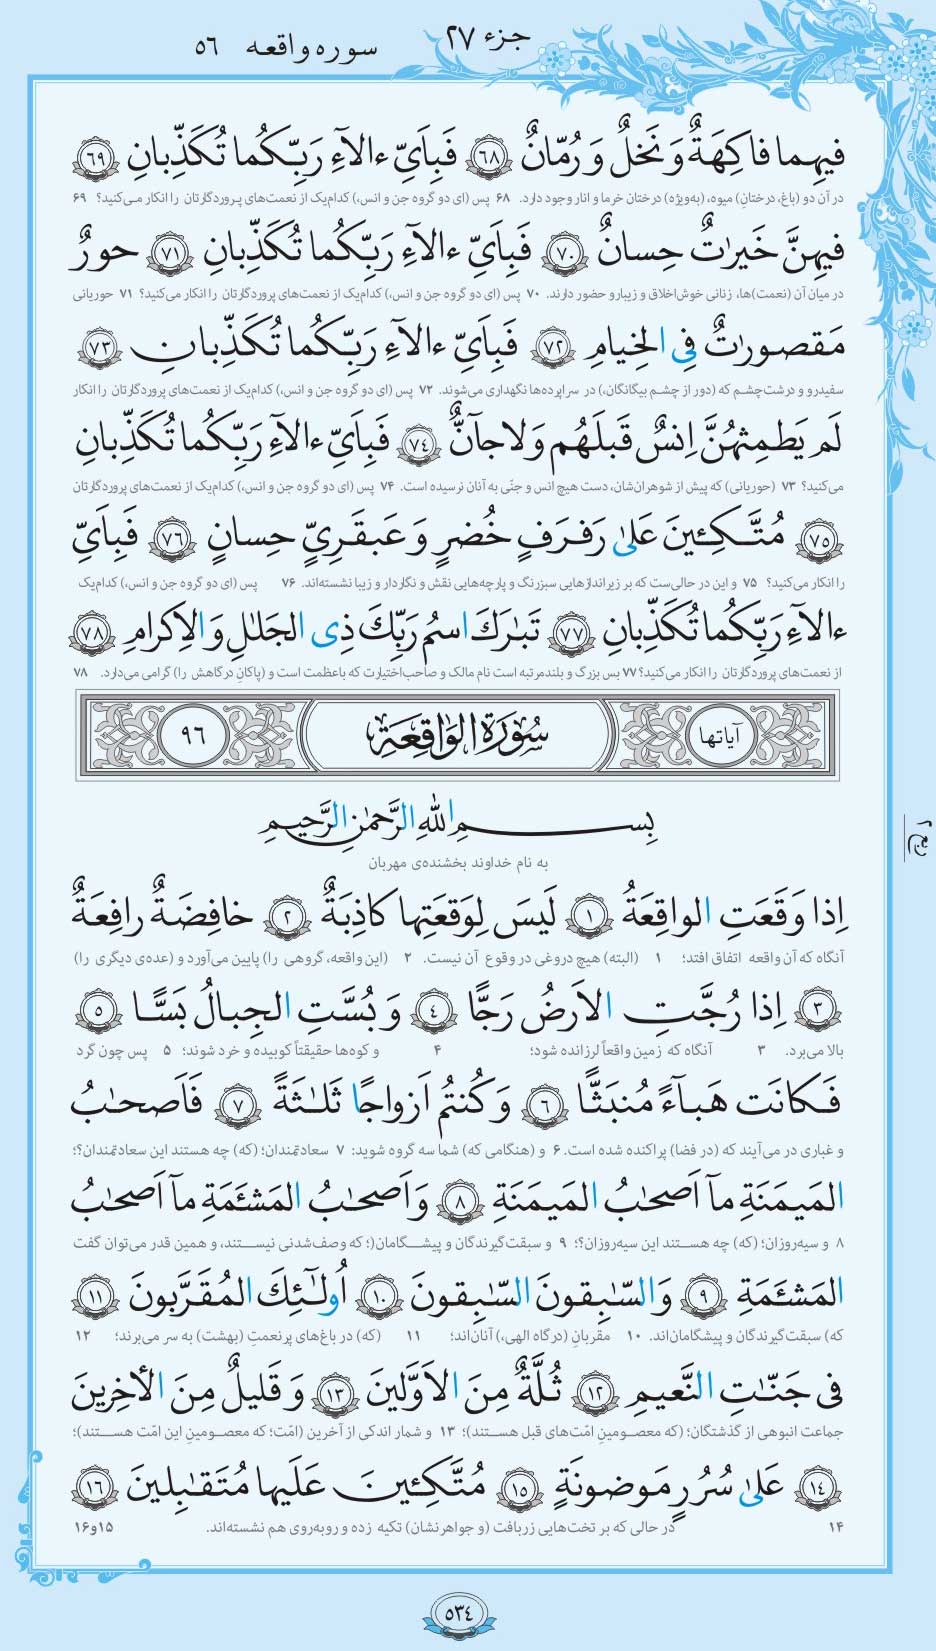 جزء ۲۷
سوره واقعه ۵۶
فيهِما فاكِهَةٌ وَ نَخلٌ وَ رُمّانٌ ۶۸ فَبِاَىِّ ءالآءِ رَبِّكُما تُكَذِّبانِ ۶۹
در آن دو (باغ، درختانِ) میوه، (به‌ویژه) درختان خرما و انار وجود دارد. ۶۸ پس (ای دو گروه جن و انس،) کدام‌یک از نعمت‌های پروردگارتان را انکار می‌کنید؟ ۶۹
فيهِنَّ خَيراتٌ حِسانٌ ۷۰ فَبِاَىِّ ءالآءِ رَبِّكُما تُكَذِّبانِ ۷۱ حورٌ
در میان آن (نعمت)ها، زنانی خوش‌اخلاق و زیبارو حضور دارند. ۷۰ پس (ای دو گروه جن و انس،) کدام‌یک از نعمت‌های پروردگارتان را انکار می‌کنید؟ ۷۱ حوریانی
مَقصوراتٌ فِى الخِيامِ ۷۲ فَبِاَىِّ ءالآءِ رَبِّكُما تُكَذِّبانِ ۷۳
سفیدرو و درشت‌چشم که (دور از چشم بیگانگان،) در سراپرده‌ها نگهداری می‌شوند. ۷۲ پس (ای دو گروه جن و انس،) کدام‌یک از نعمت‌های پروردگارتان را انکار
لَم يَطمِثهُنَّ اِنسٌ قَبلَهُم وَ لا جآنٌّ ۷۴ فَبِاَىِّ ءالآءِ رَبِّكُما تُكَذِّبانِ
می‌کنید؟ ۷۳ (حوریانی) که پیش از شوهران‌شان، دست هیچ انس و جنّی به آنان نرسیده است. ۷۴ پس (ای دو گروه جن و انس،) کدام‌یک از نعمت‌های پروردگارتان
۷۵ مُتَّكِـٔينَ عَلىٰ رَفرَفٍ خُضرٍ وَ عَبقَرِىٍّ حِسانٍ ۷۶ فَبِاَىِّ
را انکار می‌کنید؟ ۷۵ و این در حالی‌ست که بر زیراندازهایی سبزرنگ و پارچه‌هایی نقش و نگاردار و زیبا نشسته‌اند. ۷۶ پس (ای دو گروه جن و انس،) کدام‌یک
ءالآءِ رَبِّكُما تُكَذِّبانِ ۷۷ تَبـٰرَكَ اسمُ رَبِّكَ ذِى الجَلـٰلِ وَ الاِكرامِ ۷۸
از نعمت‌های پروردگارتان را انکار می‌کنید؟ ۷۷ بس بزرگ و بلندمرتبه است نام مالک و صاحب‌اختیارت که باعظمت است و (پاکانِ درگاهش را) گرامی می‌دارد. ۷۸
آیاتها سُورَةُ الواقِعَة ۹۶
بِسمِ اللهِ الرَّحمـٰنِ الرَّحيمِ
به نام خداوند بخشنده‌ی مهربان
اِذا وَقَعَتِ الواقِعَةُ ۱ لَيسَ لِوَقعَتِها كاذِبَةٌ ۲ خافِضَةٌ رافِعَةٌ
آنگاه که آن واقعه اتفاق افتد؛ ۱ (البته) هیچ دروغی در وقوع آن نیست. ۲ (این واقعه، گروهی را) پایین می‌آورد و (عده‌ی دیگری را)
۳ اِذا رُجَّتِ الاَرضُ رَجًّا ۴ وَ بُسَّتِ الجِبالُ بَسًّا ۵
بالا می‌برد. ۳ آنگاه که زمین واقعاً لرزانده شود؛ ۴ و کوه‌ها حقیقتاً کوبیده و خرد شوند؛ ۵ پس چون گرد
فَكانَت هَبآءً مُنبَثًّا ۶ وَ كُنتُم اَزواجًا ثَلـٰثَةً ۷ فَاَصحـٰبُ
و غباری در می‌آیند که (در فضا) پراکنده شده است. ۶ و (هنگامی که) شما سه گروه شوید: ۷ سعادتمندان؛ (که) چه هستند این سعادتمندان؟؛
المَيمَنَةِ مآ اَصحـٰبُ المَيمَنَةِ ۸ وَ اَصحـٰبُ المَشئَمَةِ مآ اَصحـٰبُ
۸ و سیه‌روزان؛ (که) چه هستند این سیه‌روزان؟؛ ۹ و سبقت‌گیرندگان و پیشگامان(؛ که وصف‌شدنی نیستند، و همین قدر می‌توان گفت
المَشئَمَةِ ۹ وَ السّـٰبِقونَ السّـٰبِقونَ ۱۰ اُولـٰٓئِكَ المُقَرَّبونَ ۱۱
که) سبقت‌گیرندگان و پیشگامان‌اند. ۱۰ مقربانِ (درگاه الهی،) آنان‌اند؛ ۱۱ (که) در باغ‌های پرنعمتِ (بهشت) به سر می‌برند؛ ۱۲
فى جَنّـٰتِ النَّعيمِ ۱۲ ثُلَّةٌ مِنَ الاَوَّلينَ ۱۳ وَ قَليلٌ مِنَ الأخِرينَ
جماعت انبوهی از گذشتگان؛ (که معصومینِ امّت‌های قبل هستند)؛ ۱۳ و شمار اندکی از آخرین (امّت؛ که معصومینِ این امّت هستند)؛
۱۴ عَلىٰ سُرُرٍ مَوضونَةٍ ۱۵ مُتَّكِـٔينَ عَلَيها مُتَقـٰبِلينَ ۱۶
۱۴ در حالی که بر تخت‌هایی زربافت (و جواهرنشان) تکیه زده و روبه‌روی هم نشسته‌اند. ۱۵و۱۶
۵۳۴